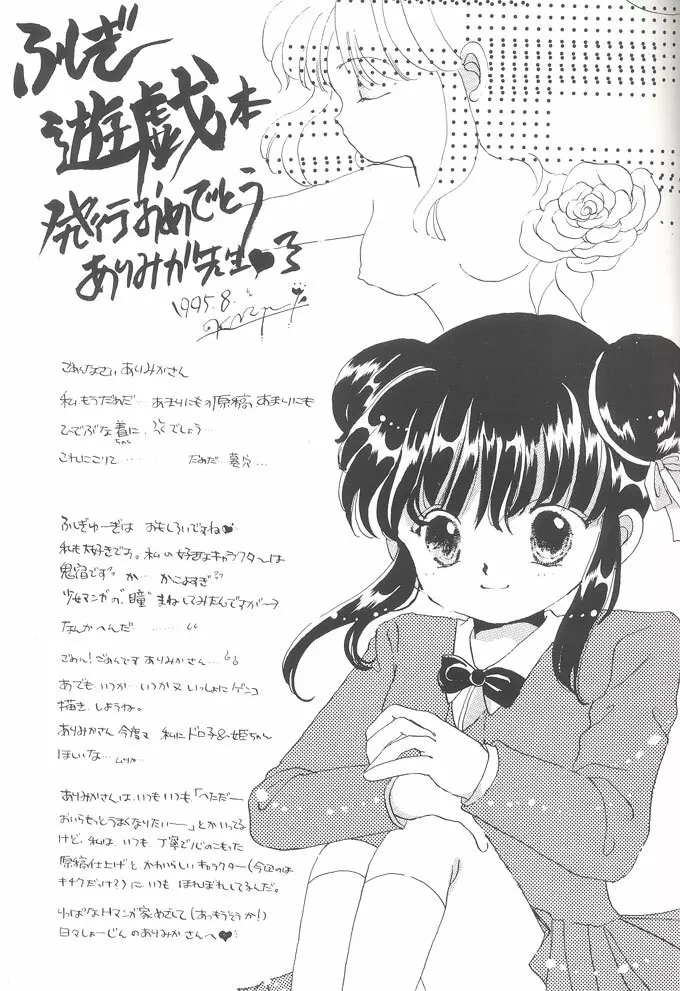 ふしぎ
遊戯本
発行おめでとう
ありみか先生♥
1995.8.
ごめんなさい ありみかさん
私もうだめだ… あまりにもの原稿 あまりにも
ひでぶな着に、 でしょう…
これにこりて…… だめだ… 墓穴…
ふしぎゆーぎは おもしろいですね♥
私も大好きです。私の好きなキャラクターは
鬼宿です。 か… かっこよすぎ
少女マンガの"瞳" まねしてみたんですが→
なんかへんだ………
ごめん!ごめんです ありみかさん…
あでも いつか… いつか又 いっしょに ゲンコ
描き しようね。
ありみかさん 今度 私に ドロ子&姫ちゃん
ほしいな… ムリか…
ありみかさんは、いつもいつも「へただー
おいらもっとうまくなりたいー」とかいってる
けど、私は、いつも、丁寧で心のこもった
原稿仕上げと かわいらしい キャラクター(今回のは
キチクだっけ?)に いつも ほれぼれしてるんだ。
りっぱなHマンガ家めざして(あっもうそうか!)
日々しょーじんの ありみか さんへ♥